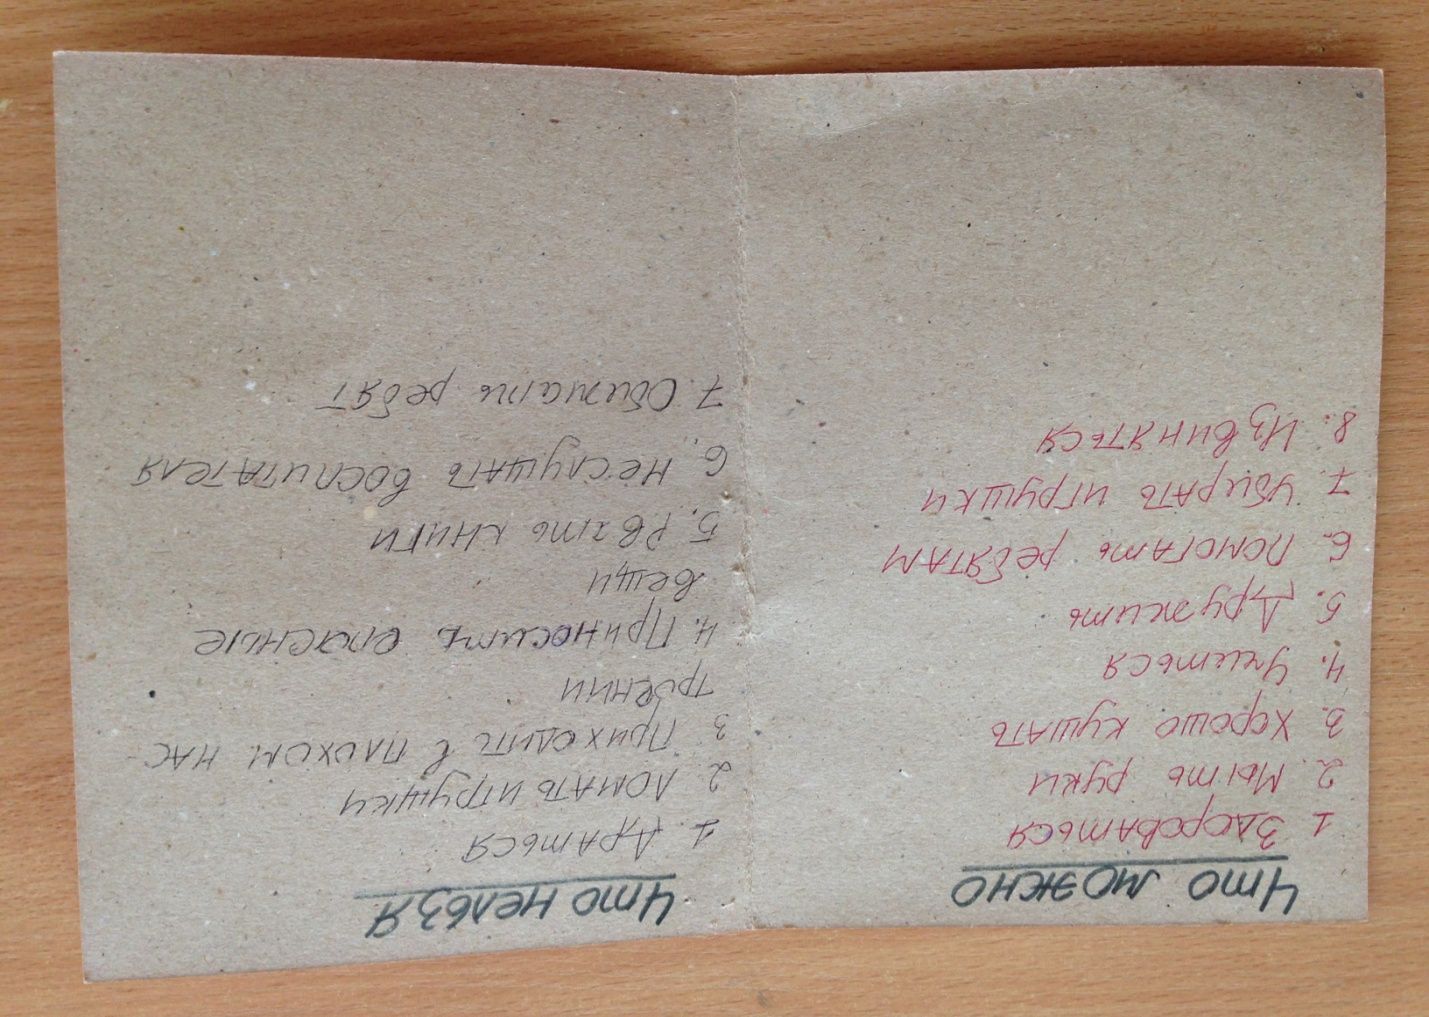 Что можно
1 Здороваться
2. Мыть руки
3. Хорошо кушать
4. Учиться
5. Дружить
6. Помогать ребятам
7. Убирать игрушки
8. Извиняться
Что нельзя
1. Драться
2. Ломать игрушки
3. Приходить в плохом нас-
троении
4. Приносить опасные
вещи
5. Рвать книги
6. Неслушать воспитателя
7. Обижать ребят